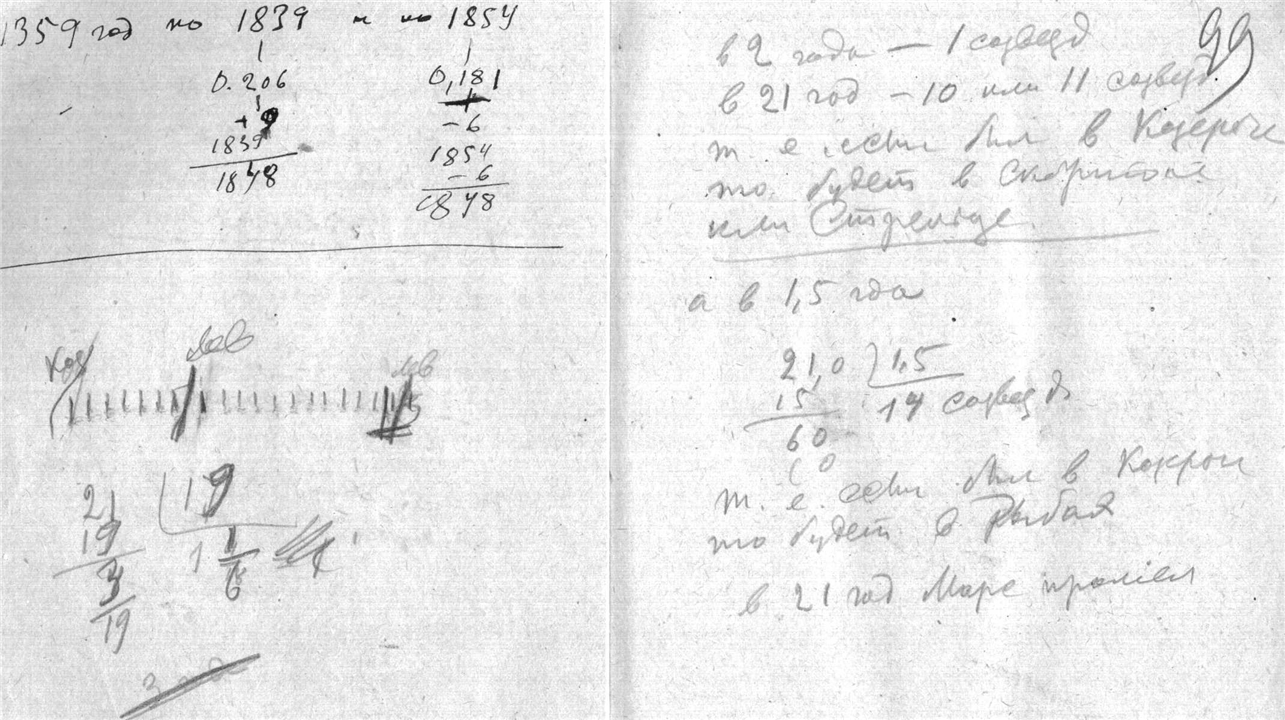 1359 год по 1839 и по 1854
0.206
+9
1839
1848
0,181
-6
1854
-6
1848
Лев
21
19
19
3
19
1
99
в 2 года — 1 созвезд
в 21 год — 10 или 11 созвезд.
т. е. если был в Козероге
то будет в Скорпионе
или Стрельце
а в 1,5 года
21,0 1,5
15 14 созвезд
60
60
т. е. если был в Козероге
то будет в Рыбах
в 21 год Марс прошел